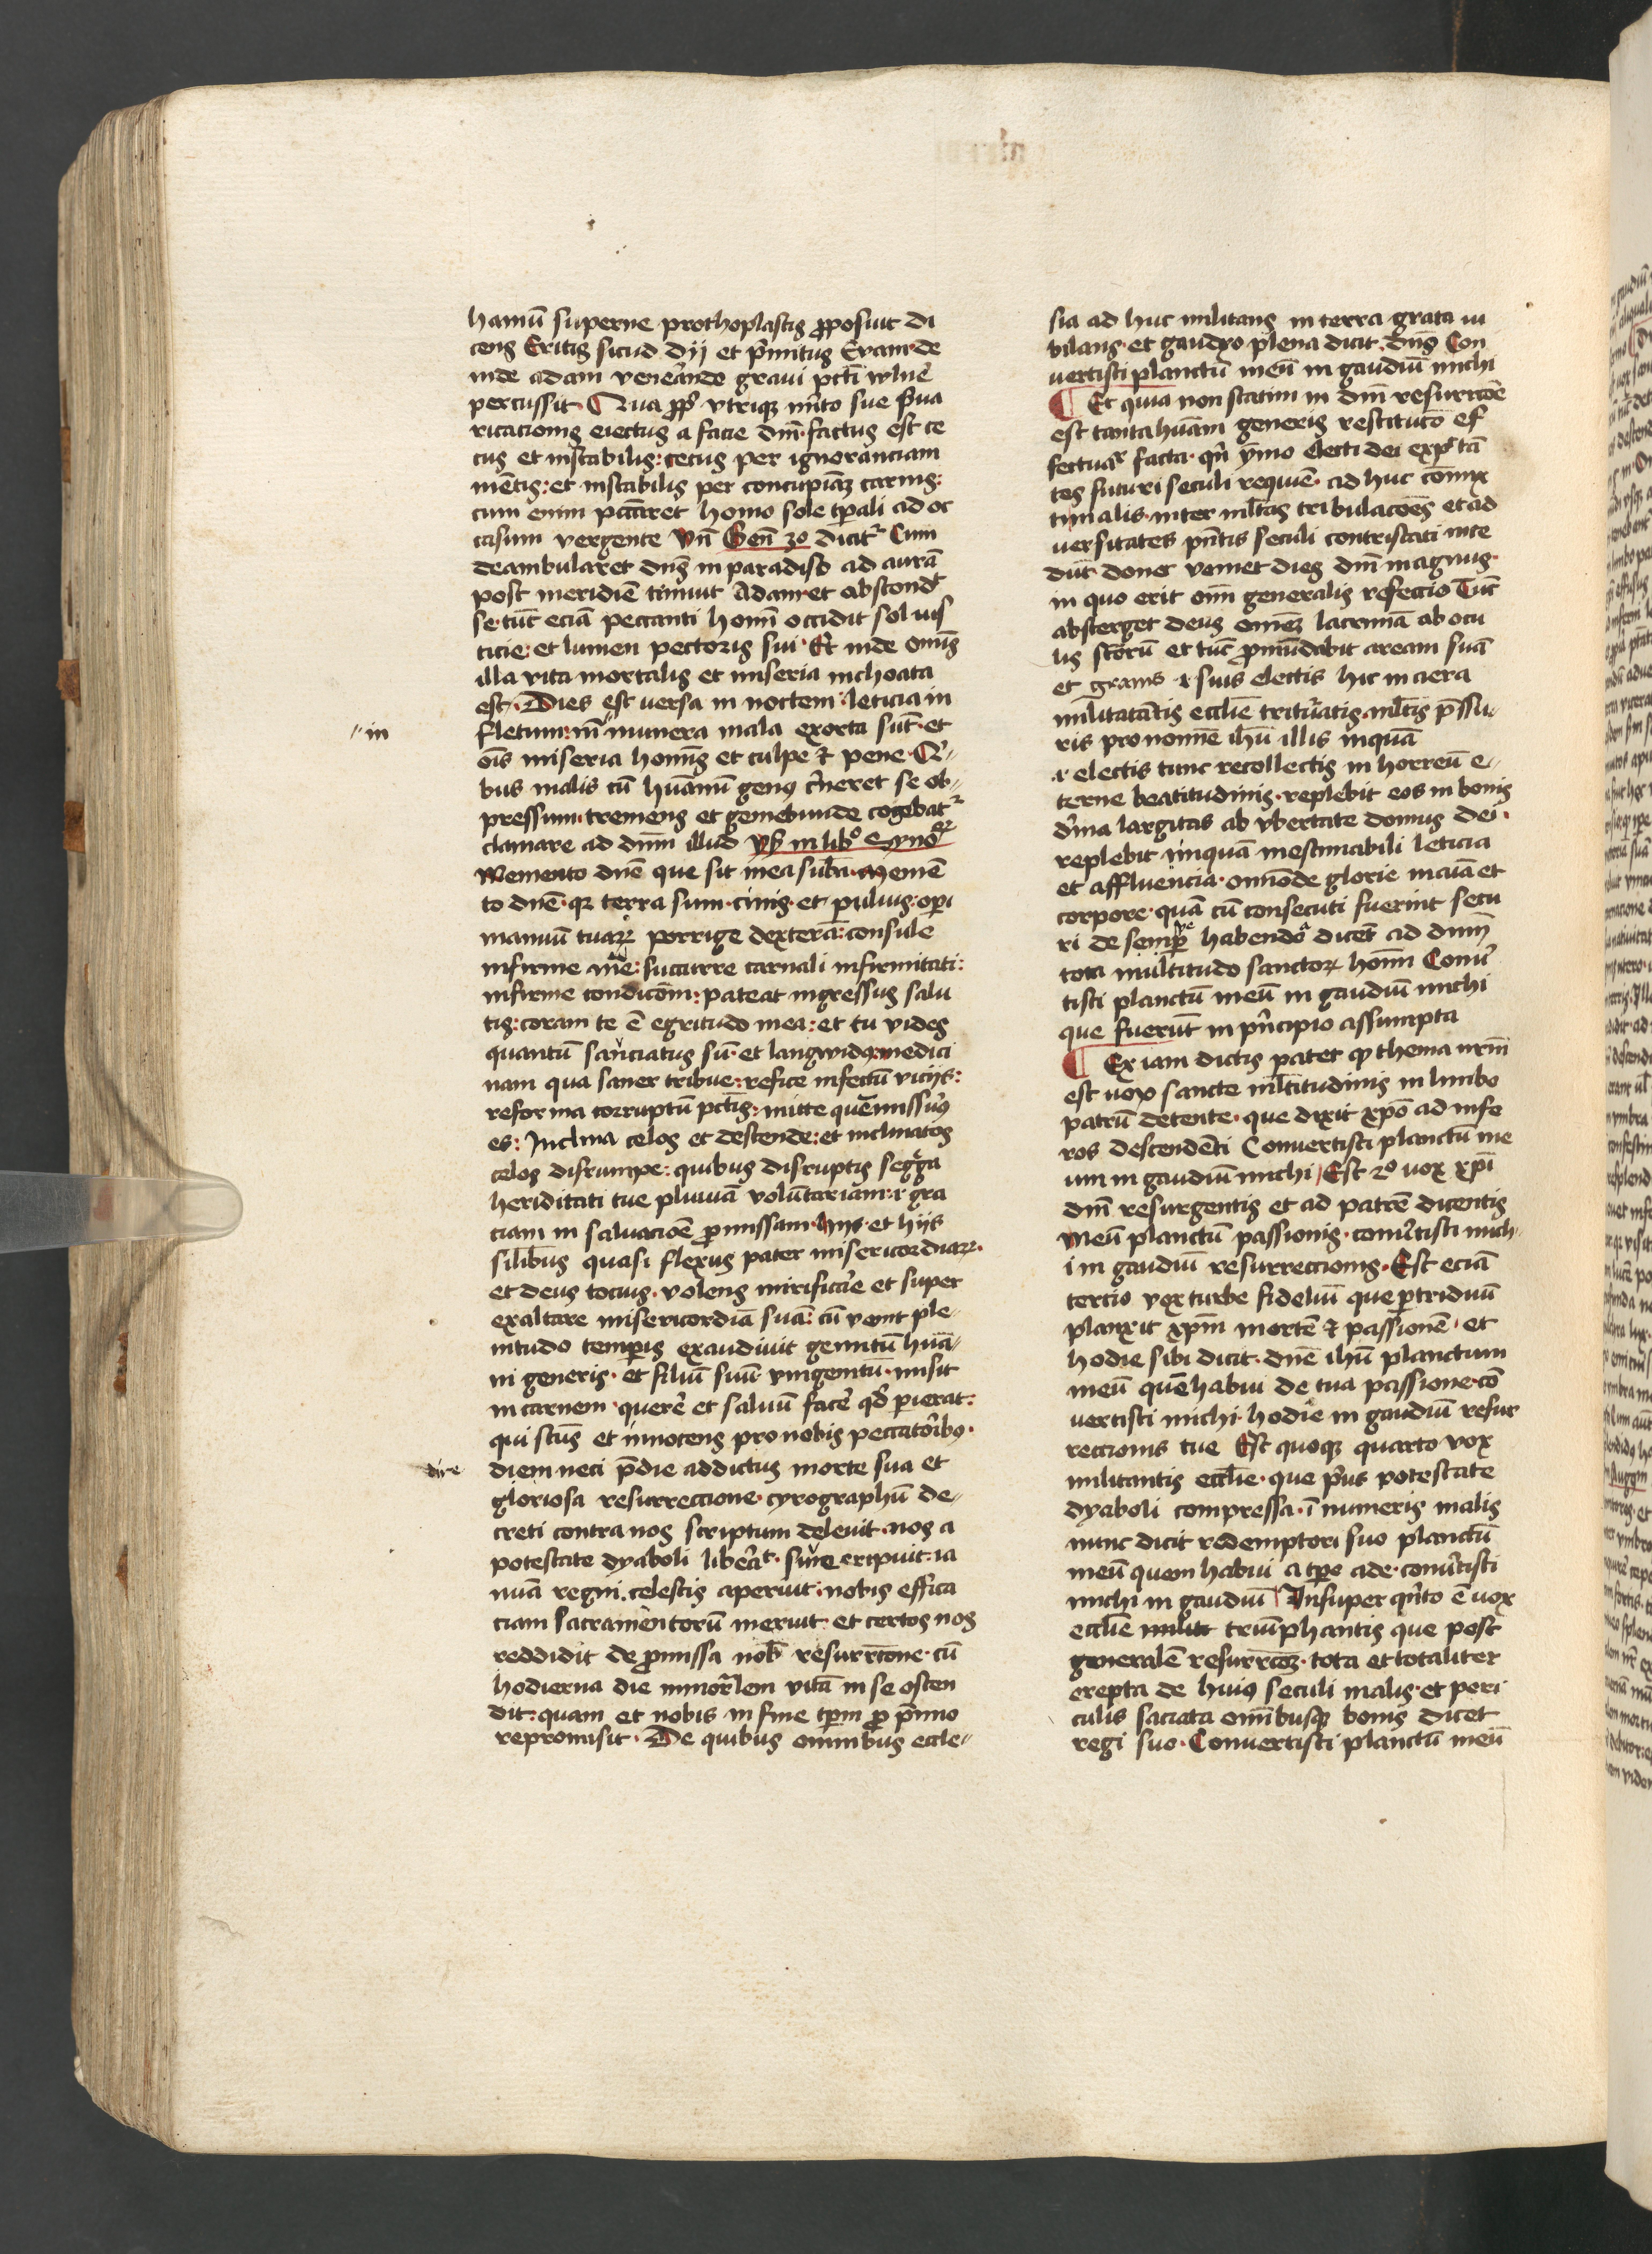 hamū superne prothoplastis ꝓposuit di
cens Eritis sicud dij et pͥmitus Evam de
inde adam venerande gravi pctī vulne
percussit Qua ꝓpt̄ vtriqꝫ mͥto sue pͥua
ricacionis eiectus a facie dnī factus est ce
cus et instabilis: cecus per ignoranciam
mētis: et instabilis per concupiāꝫ carnis:
cum enim pccāret homo sole tꝑali ad oc
casum vergente Vn̄ Gen̄ 3o dicit᷑ Cum
deambularet dn̄s in paradiso ad aurā
post meridiē timuit Adam et abscond̄
se tūc eciā peccanti homī occidit sol ius
ticie: et lumen pectoris sui Et inde om̄s
illa vita mortalis et miseria inchoata
est Dies est versa in noctem leticia in
in
fletum: īnumera mala exorta sūt et
oīs miseria homīs et culpe et pene Qͥ
bus malis cū hūanū genꝰ cͥneret se ob
pressum tremens et gemebunde cogebat᷑
clamare ad dnm̄ illud
Memento dnē que sit mea sub̄a Memē
to dnē qꝛ terra sum cinis et puluis operi
manuū tuaꝝ porrige dexterā: consule
infirme succurre carnali infirmitati:
infirme condicōni: pateat ingressus salu
tis: coram te ē egritudo mea: et tu vides
quantū sauciatus sū et langwidꝰ medici
nam qua saner tribue: refice infectū vicijs:
reforma corruptū pctīs: mitte quē missurꝰ
es: Inclina celos et descende: et inclinatos
celos disrumpe: quibus disruptis segͤga
heriditati tue pluuiā voluntariam .i. gra
ciam in saluacioē ꝓmissam hijs et hijs
silibus quasi flexus pater misericordiaꝝ
et deus tocius volens mirificare et super
exaltare misericordiā suā: cū venit ple
nitudo temꝑis exaudiuit gemitū hūa
ni generis et filiū suū vnigenitū misit
in carnem querē et saluū facē qd̄ ꝑierat:
qui scūs et innocens pro nobis peccatoribꝰ
dire
diem neci pͥdie addictus morte sua et
gloriosa resurreccione cyrographū de
creti contra nos scriptum deleuit nos a
potestate dyaboli liberat eripuit ia
nuā regni celestis aperuit nobis effica
ciam sacramentorū meruit et certos nos
reddidit de ꝓmissa nob̄ resurrc̄cone cū
hodierna die inmorl̄em vitā in se osten
dit: quam et nobis in fine tꝑm ꝓ pͥmio
repromisit De quibus omnibus eccle
sia ad huc militans in terra grata iu
bilans et gaudyo plena dicit dn̄s Con
vertisti planctū meū in gaudiū michi
¶ Et quia non statim in dnī resurrccōe
est tanta hūani generis restitucō ef
fectuaͬ facta qn̄ ymo electi dei expͨtā
tes futuri seculi requiē ad huc cōmix
tim alis inter ml̄tas tribulacōes et ad
versitates pn̄tis seculi contristati ince
dūt donec veniet dies dnī magnus
in quo erit oīm generalis refectio Tūc
absterget deus om̄eꝫ lacrimā ab ocu
lis scōrū et tūc ꝓmūdabit aream suā
et granis .i. suis electis hic in aera
militātis ecclīe trituratis ml̄tis pͥssu
ris pro nomine ihū illis inquā
.i. electis tunc recollectis in horreū e
terne beatitudinis replebit eos in bonis
dīna largitas ab vbertate domus dei
replebit inquā inestimabili leticia
et affluencia omiōde glorie in aīa et
corpore quā cū consecuti fuerint secu
ri de semꝑ habendo dicet ad dnm̄
tota multitudo sanctoꝝ homī Conūͬ
tisti planctū meū in gaudiū michi
que fuerūt in pͥncipio assumpta
¶ Ex iam dictis patet ꝙ thema nrm̄
est vox sancte ml̄titudinis in limbo
patrū detente que dixit xpō ad infe
ros descendēti Convertisti planctū me
um in gaudiū michi Est 2o vox xpī
dnī resurgentis et ad patrē dicentis
Meū planctū passionis conūͬtisti mich
i in gaudiū resurreccionis Est eciā
tercio vox turbe fideliū que ꝑ triduū
planxit xpm̄ mortē et passionē et
hodie sibi dicit dnē ihū planctum
meū quē habui de tua passione cō
vertisti michi hodie in gaudiū resur
reccionis tue Est quoqꝫ quarto vox
militantis ecclīe que pͥus potestate
dyaboli compressa īnumeris malis
nunc dicit redemptori suo planctū
meū quem habui a tꝑe ade conūͬtisti
michi in gaudiū Insuper qͥnto ē vox
ecclīe triūphantis que post
generalē resurrccōꝫ tota et totaliter
erepta de huiꝰ seculi malis et peri
culis saciata omībusqꝫ bonis dicet
regi suo Convertisti planctū meū